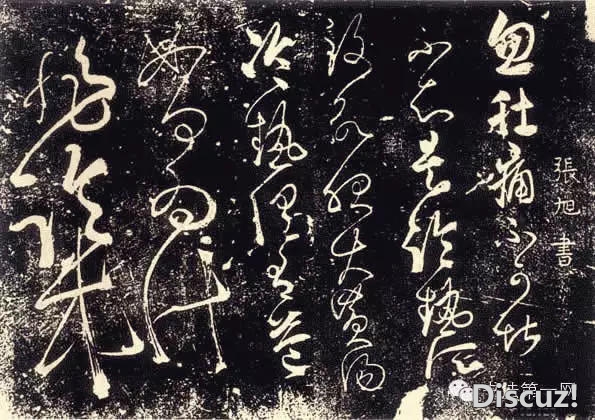 張旭書
忽肚痛不可堪
不知是冷熱所
致欲服大黃湯
冷熱俱有益
如何為計
非臨床
Discuz!